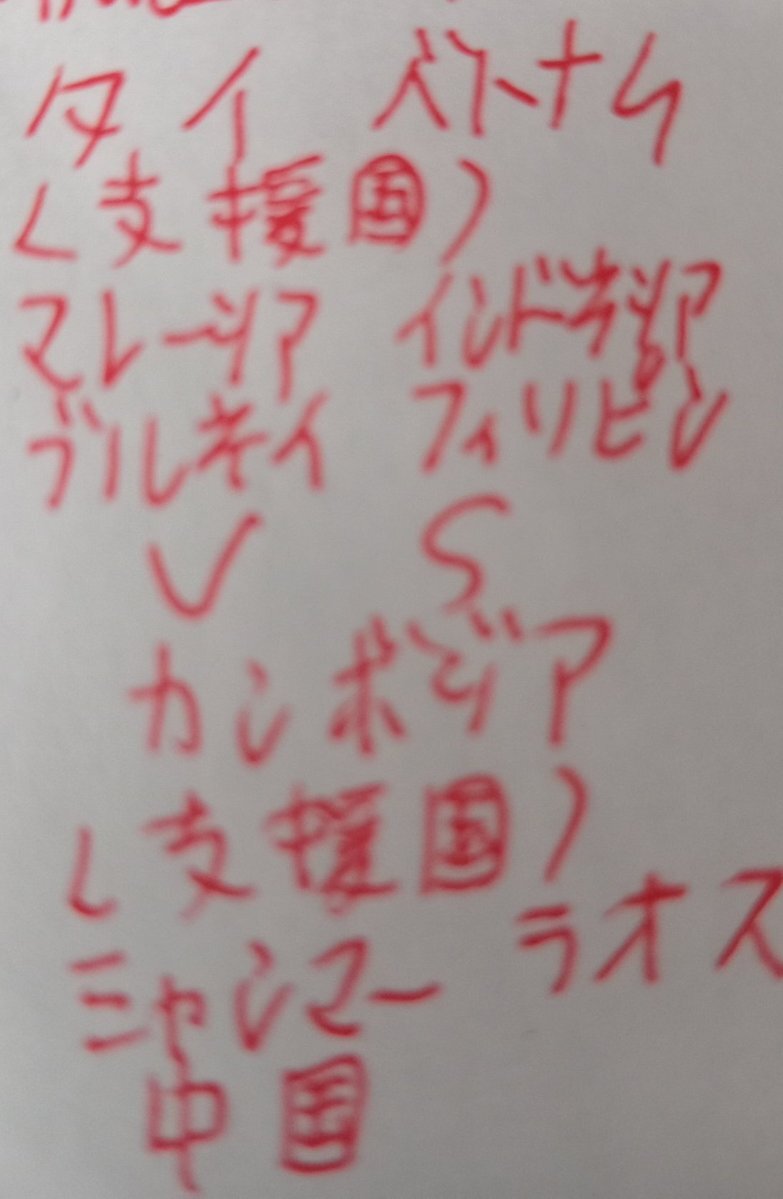 タイ ベトナム
(支援国)
マレーシア インドネシア
ブルネイ フィリピン
VS
カンボジア
(支援国)
ミャンマー ラオス
中国